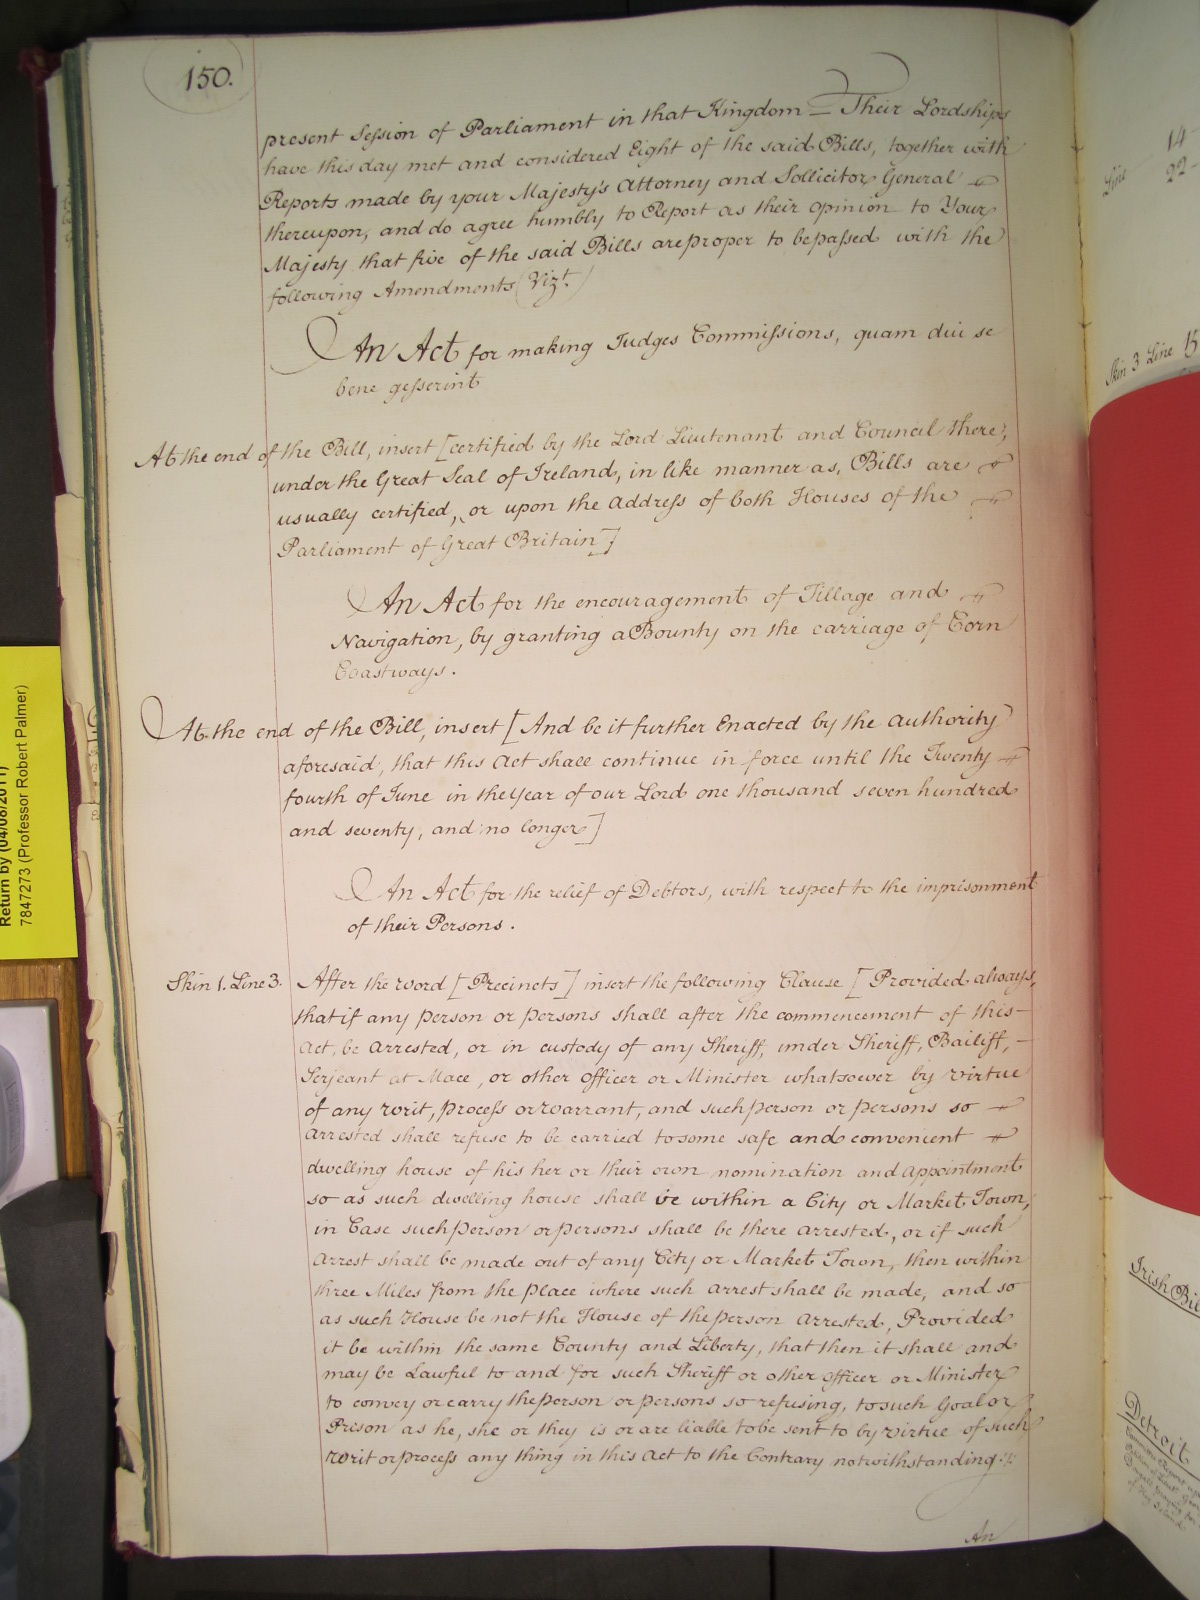 150.
present Session of Parliament in that Kingdom — Their Lordships
have this day met and considered Eight of the said Bills, together with
Reports made by your Majesty's Attorney and Sollicitor General
thereupon, and do agree humbly to Report as their opinion to Your
Majesty that five of the said Bills are proper to be passed with the
following Amendments (Vizt.)
An Act for making Judges Commissions, quam diu se
bene gesserint
At the end of the Bill, insert [certified by the Lord Lieutenant and Council there,
under the Great Seal of Ireland, in like manner as, Bills are
usually certified, or upon the Address of both Houses of the
Parliament of Great Britain]
An Act for the encouragement of Tillage and
Navigation, by granting a Bounty on the carriage of Corn
Coastways.
At the end of the Bill, insert [And be it further Enacted by the authority
aforesaid, that this Act shall continue in force until the Twenty
fourth of June in the Year of our Lord one thousand seven hundred
and seventy, and no longer]
An Act for the relief of Debtors, with respect to the imprisonment
of their Persons.
Skin 1. Line 3. After the word [Precincts] insert the following Clause [Provided always,
that if any person or persons shall after the commencement of this
Act, be Arrested, or in custody of any Sheriff, under Sheriff, Bailiff,
Serjeant at Mace, or other Officer or Minister whatsoever by virtue
of any writ, process or warrant, and such person or persons so
Arrested shall refuse to be carried to some safe and convenient
dwelling house of his her or their own nomination and appointment
so as such dwelling house shall be within a City or Market Town,
in Case such person or persons shall be there arrested, or if such
Arrest shall be made out of any City or Market Town, then within
three Miles from the place where such arrest shall be made, and so
as such House be not the House of the person Arrested, Provided
it be within the same County and Liberty, that then it shall and
may be Lawful to and for such Sheriff or other officer or Minister
to convey or carry the person or persons so refusing, to such Goal or
Prison as he, she or they is or are liable to be sent to by virtue of such
writ or process any thing in this Act to the Contrary notwithstanding.
An
Return by (04/08/2011)
7847273 (Professor Robert Palmer)
14
Line 22
Skin 3 Line 15
Irish Bil
Detroit